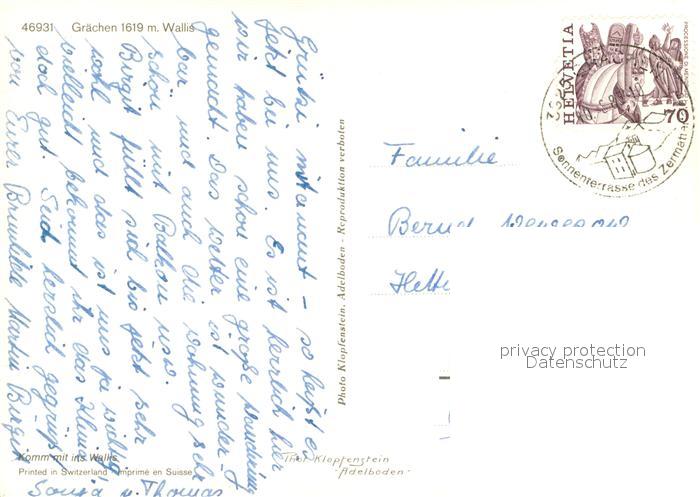 46931 Grächen 1619 m. Wallis
Grützi mitanent - so heißt es
jetzt bei uns. Es ist herrlich hier
wir haben schon eine große Wanderung
gemacht. Das Wetter ist wunder-
bar und auch die Wohnung sehr
schön mit Balkon usw.
Birgit fühlt sich bis jetzt sehr
wohl und das ist uns ja wichtig
vielleicht bekommt ihr das Klima
doch gut. Seid herzlich gegrüßt
von Eurer Brunhilde Martin Birgit
Sonja u. Thomas
Komm mit ins Wallis
Printed in Switzerland - Imprimé en Suisse
Photo Klopfenstein, Adelboden - Reproduktion verboten
Thor Klopfenstein
-Adelboden-
HELVETIA
70
Sonnenterrasse des Zermatter
Familie
Bernd
privacy protection
Datenschutz